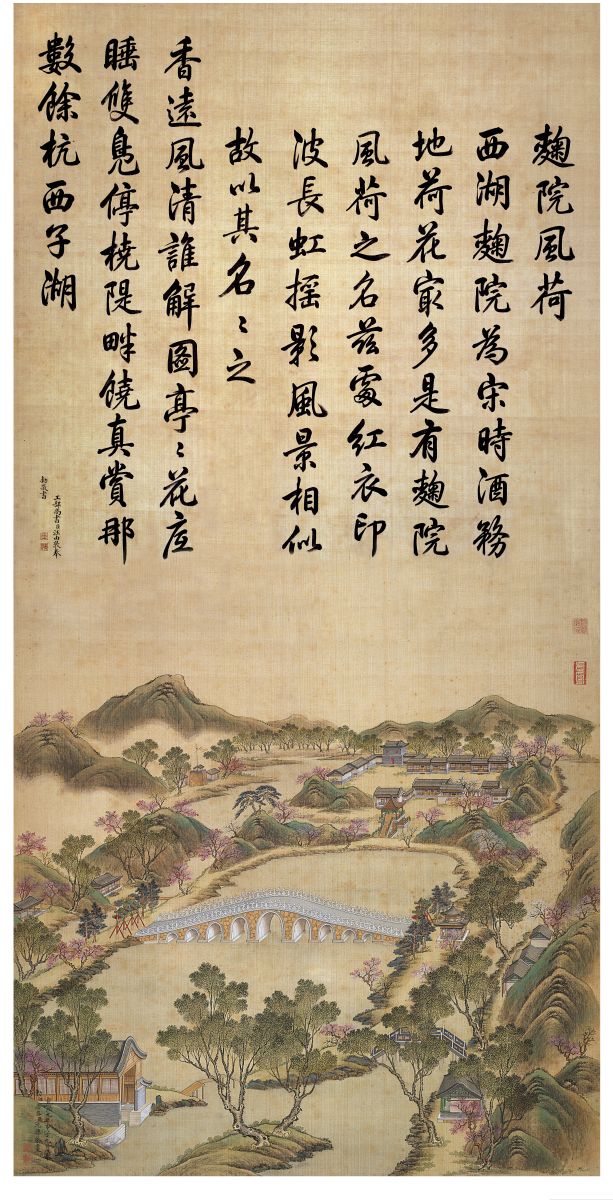 麴院風荷
西湖麴院為宋時酒務
地荷花最多是有麴院
風荷之名茲處紅衣印
波長虹搖影風景相似
故以其名〻之
香遠風清誰解圖亭〻花底
睡雙鳧停橈隄畔饒真賞那
數餘杭西子湖
工部尚書臣汪由敦奉
勅敬書